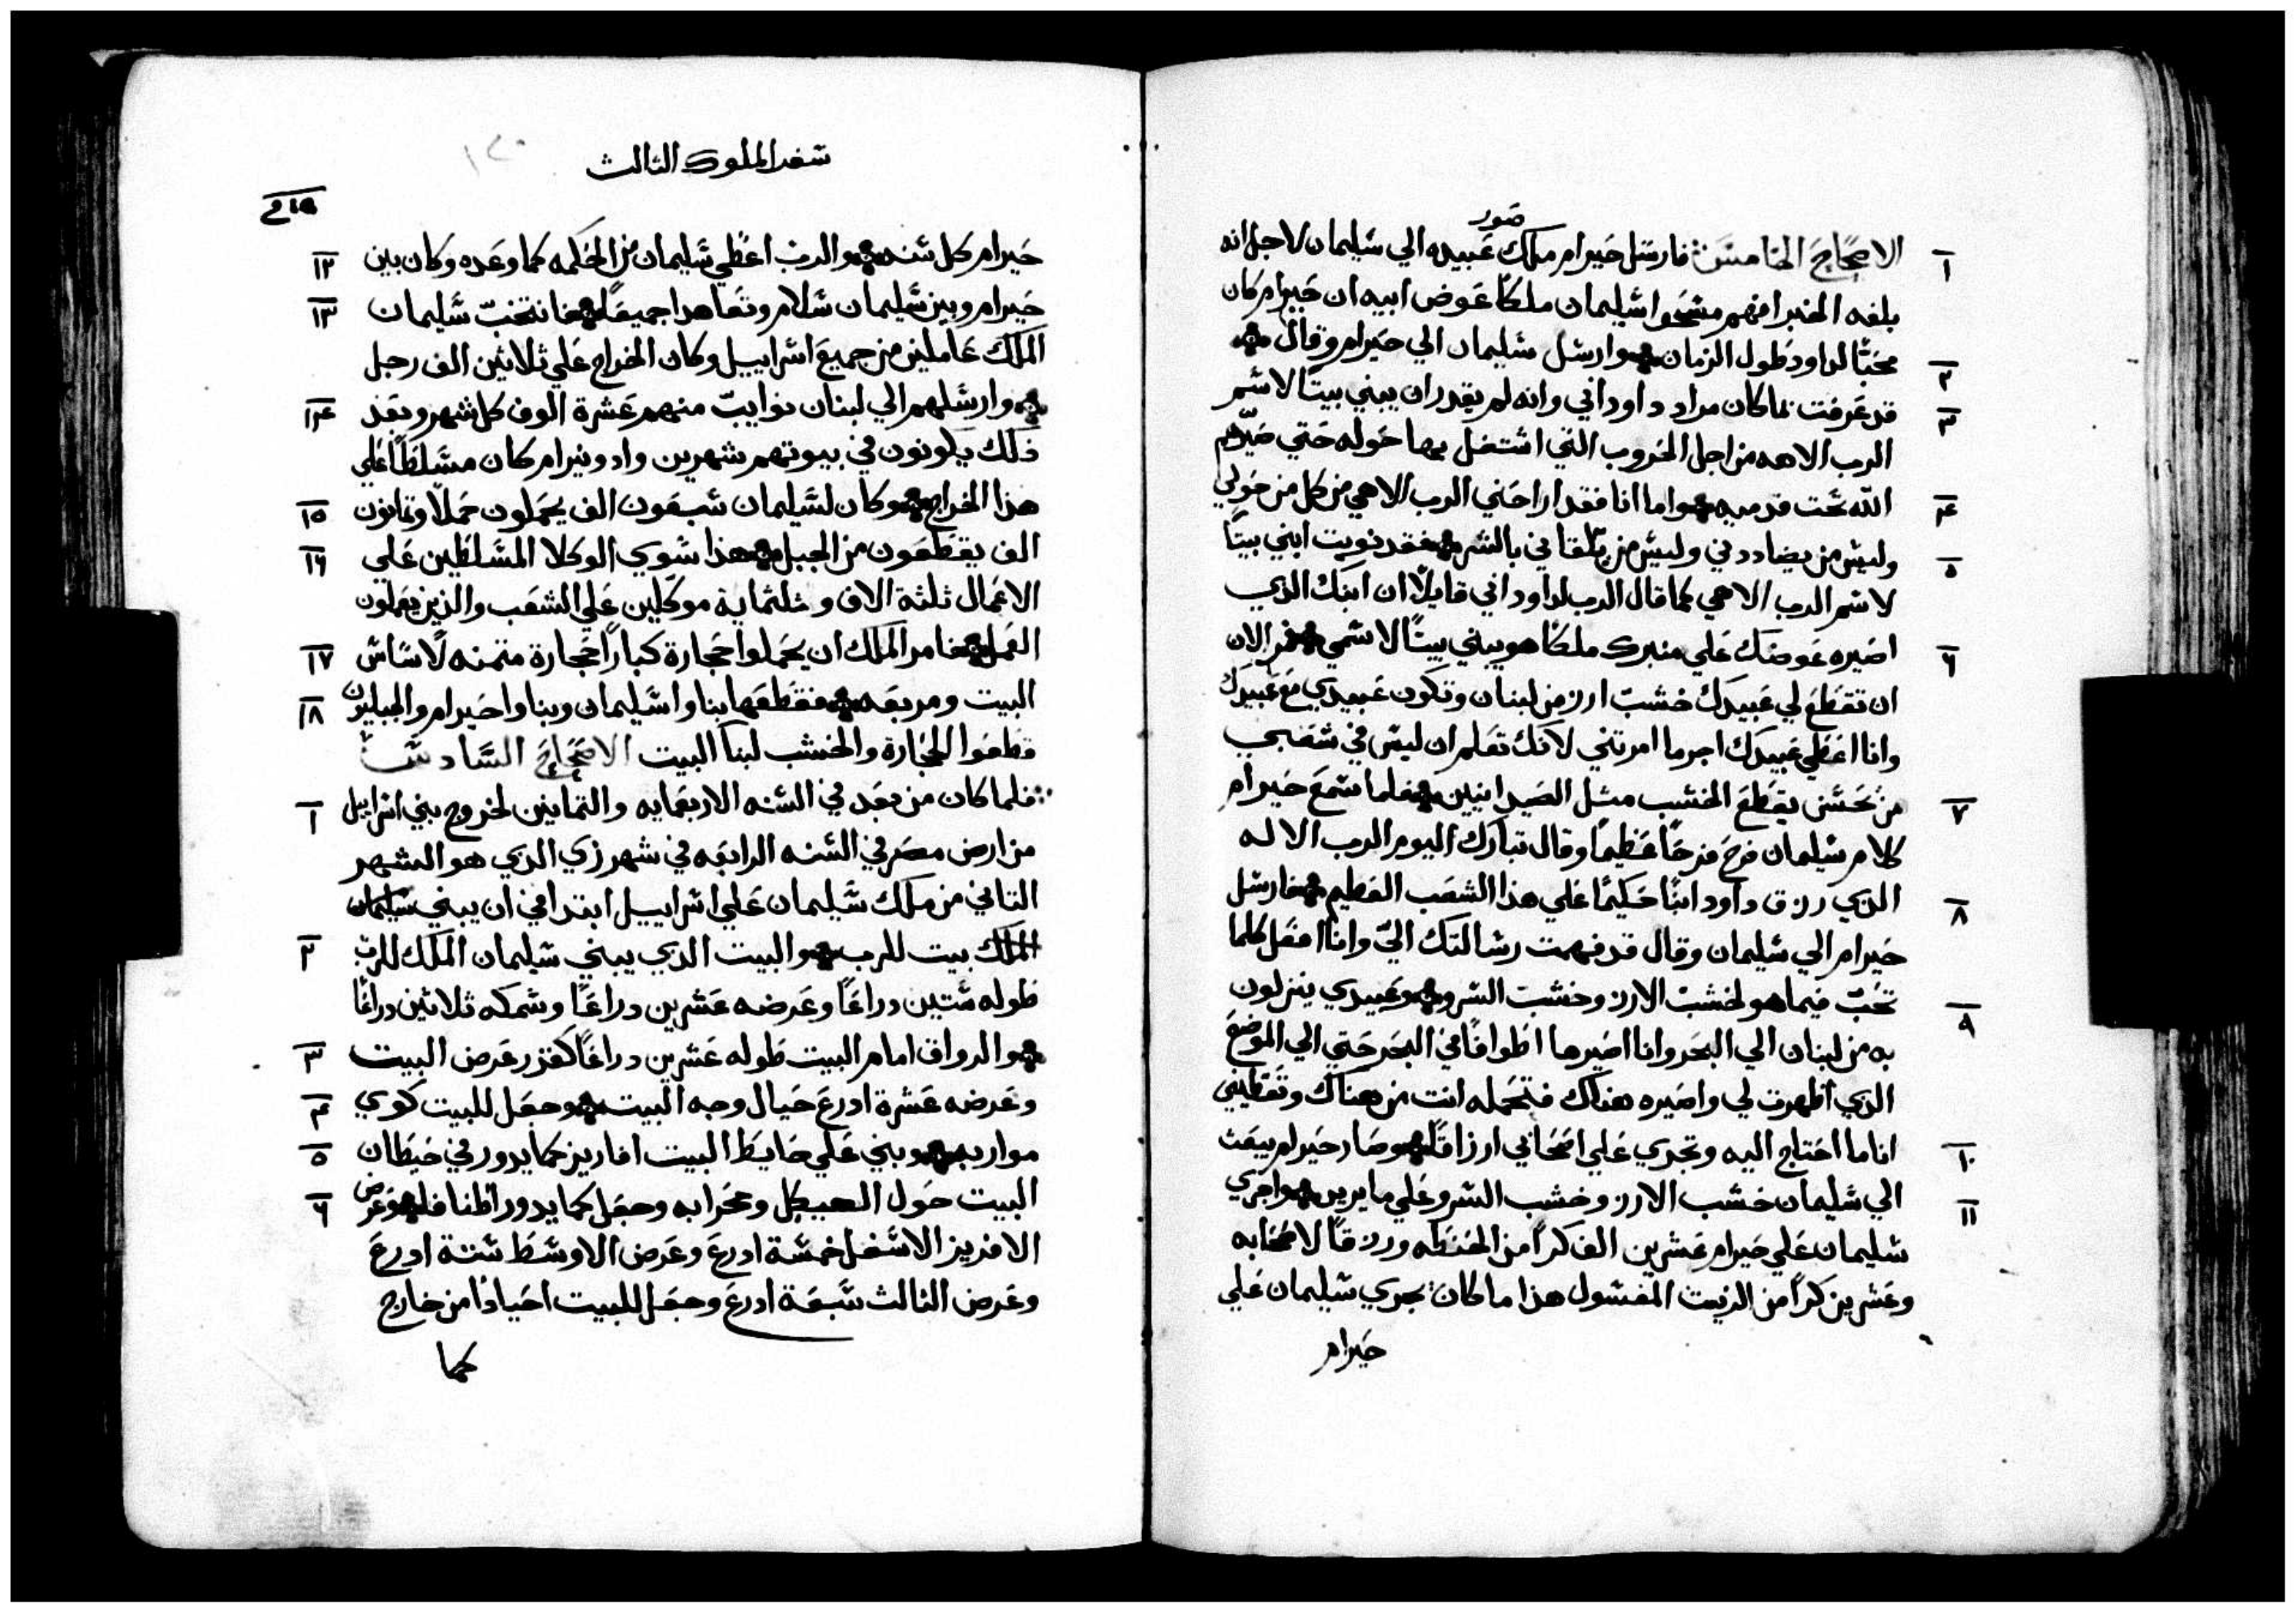 صور
١ الاصحاح الخامس فارسل حيرام ملك عبيده الي سليمان لاجل انه
بلغه الخبر انهم مسحوا سليمان ملكًا عوض ابيه ان حيرام كان
٢ محبًا لداود طول الزمان وارسل سليمان الي حيرام وقال
٣ قد عرفت ما كان مراد داود ابي وانه لم يقدر ان يبني بيتًا لاسم
الرب الاهه من اجل الحروب التي اشتغل بها حوله حتي صيّرهم
٤ الله تحت قدميه واما انا فقد اراحني الرب الاهي من كل من حولي
٥ وليس من يضاددني وليس من يلقاني بالشر فقد نويت ابني بيتًا
لاسم الرب الاهي كما قال الرب لداود ابي قايلًا ان ابنك الذي
٦ اصيره عوضك علي منبرك ملكًا هو يبني بيتًا لاسمي فمر الان
ان تقطع لي عبيدك خشب ارز من لبنان وتكون عبيدي مع عبيدك
وانا اعطي عبيدك اجر ما امرتني لانك تعلم ان ليس في شعبي
٧ من يحسن يقطع الخشب مثل الصيدانيين فلما سمع حيرام
كلام سليمان فرح فرحًا عظيمًا وقال تبارك اليوم الرب الاله
٨ الذي رزق داود ابنًا حكيمًا علي هذا الشعب العظيم فارسل
حيرام الي سليمان وقال قد فهمت رسالتك اليّ وانا افعل كلما
٩ تحب فيما هو لخشب الارز وخشب السرو وعبيدي ينزلون
به من لبنان الي البحر وانا اصيرها اطوافًا في البحر حتي الي الموضع
الذي اظهرت لي واصيره هناك فتحمله انت من هناك وتعطيني
١٠ انا ما احتاج اليه وتجري علي اصحابي ارزاقًا وصار حيرام يبعث
١١ الي سليمان خشب الارز وخشب السرو علي ما يريد واجري
سليمان علي حيرام عشرين الف كرًا من الحنطه ورزقًا لاصحابه
وعشرين كرًا من الزيت المغسول هذا ما كان يجري سليمان علي
حيرام
سفر الملوك الثالث
١٢ حيرام كل سنه والرب اعطي سليمان من الحكمه كما وعده وكان بين
١٣ حيرام وبين سليمان سلام وتعاهدا جميعًا فانتخب سليمان
الملك عاملين من جميع اسراييل وكان الخراج علي ثلاثين الف رجل
١٤ وارسلهم الي لبنان نوايب منهم عشرة الوف كل شهر وبعد
ذلك يكونون في بيوتهم شهرين وادونيرام كان مسلطًا علي
١٥ هذا الخراج وكان لسليمان سبعون الف يحملون حملًا وثمانون
١٦ الف يقطعون من الجبل هذا سوي الوكلا المسلطين علي
الاعمال ثلثة الاف وثلثماية موكلين علي الشعب والذين يعملون
١٧ العمل فامر الملك ان يحملوا حجارة كبارًا حجارة متمنه لاساس
١٨ البيت ومربعه فقطعها بناوا سليمان وبناوا حيرام والجبليون
قطعوا الحجارة والخشب لبنا البيت الاصحاح السادس
١ فلما كان من بعد في السنه الاربعمايه والثمانين لخروج بني اسراييل
من ارض مصر في السنه الرابعه في شهر زي الذي هو الشهر
الثاني من ملك سليمان علي اسراييل ابتدا في ان يبني سليمان
٢ الملك بيت للرب والبيت الذي يبني سليمان الملك للرب
طوله ستين دراعًا وعرضه عشرين دراعًا وسمكه ثلاثين دراعًا
٣ والرواق امام البيت طوله عشرين دراعًا كقدر عرض البيت
٤ وعرضه عشرة ادرع حيال وجه البيت وجعل للبيت كوي
٥ مواربه وبني علي حايط البيت افاريز كما يدور في حيطان
٦ البيت حول الهيكل ومحرابه وجعل كما يدور اظنافله وعرض
الافريز الاسفل خمسة ادرع وعرض الاوسط ستة ادرع
وعرض الثالث سبعة ادرع وجعل للبيت اجيادًا من خارج
كما